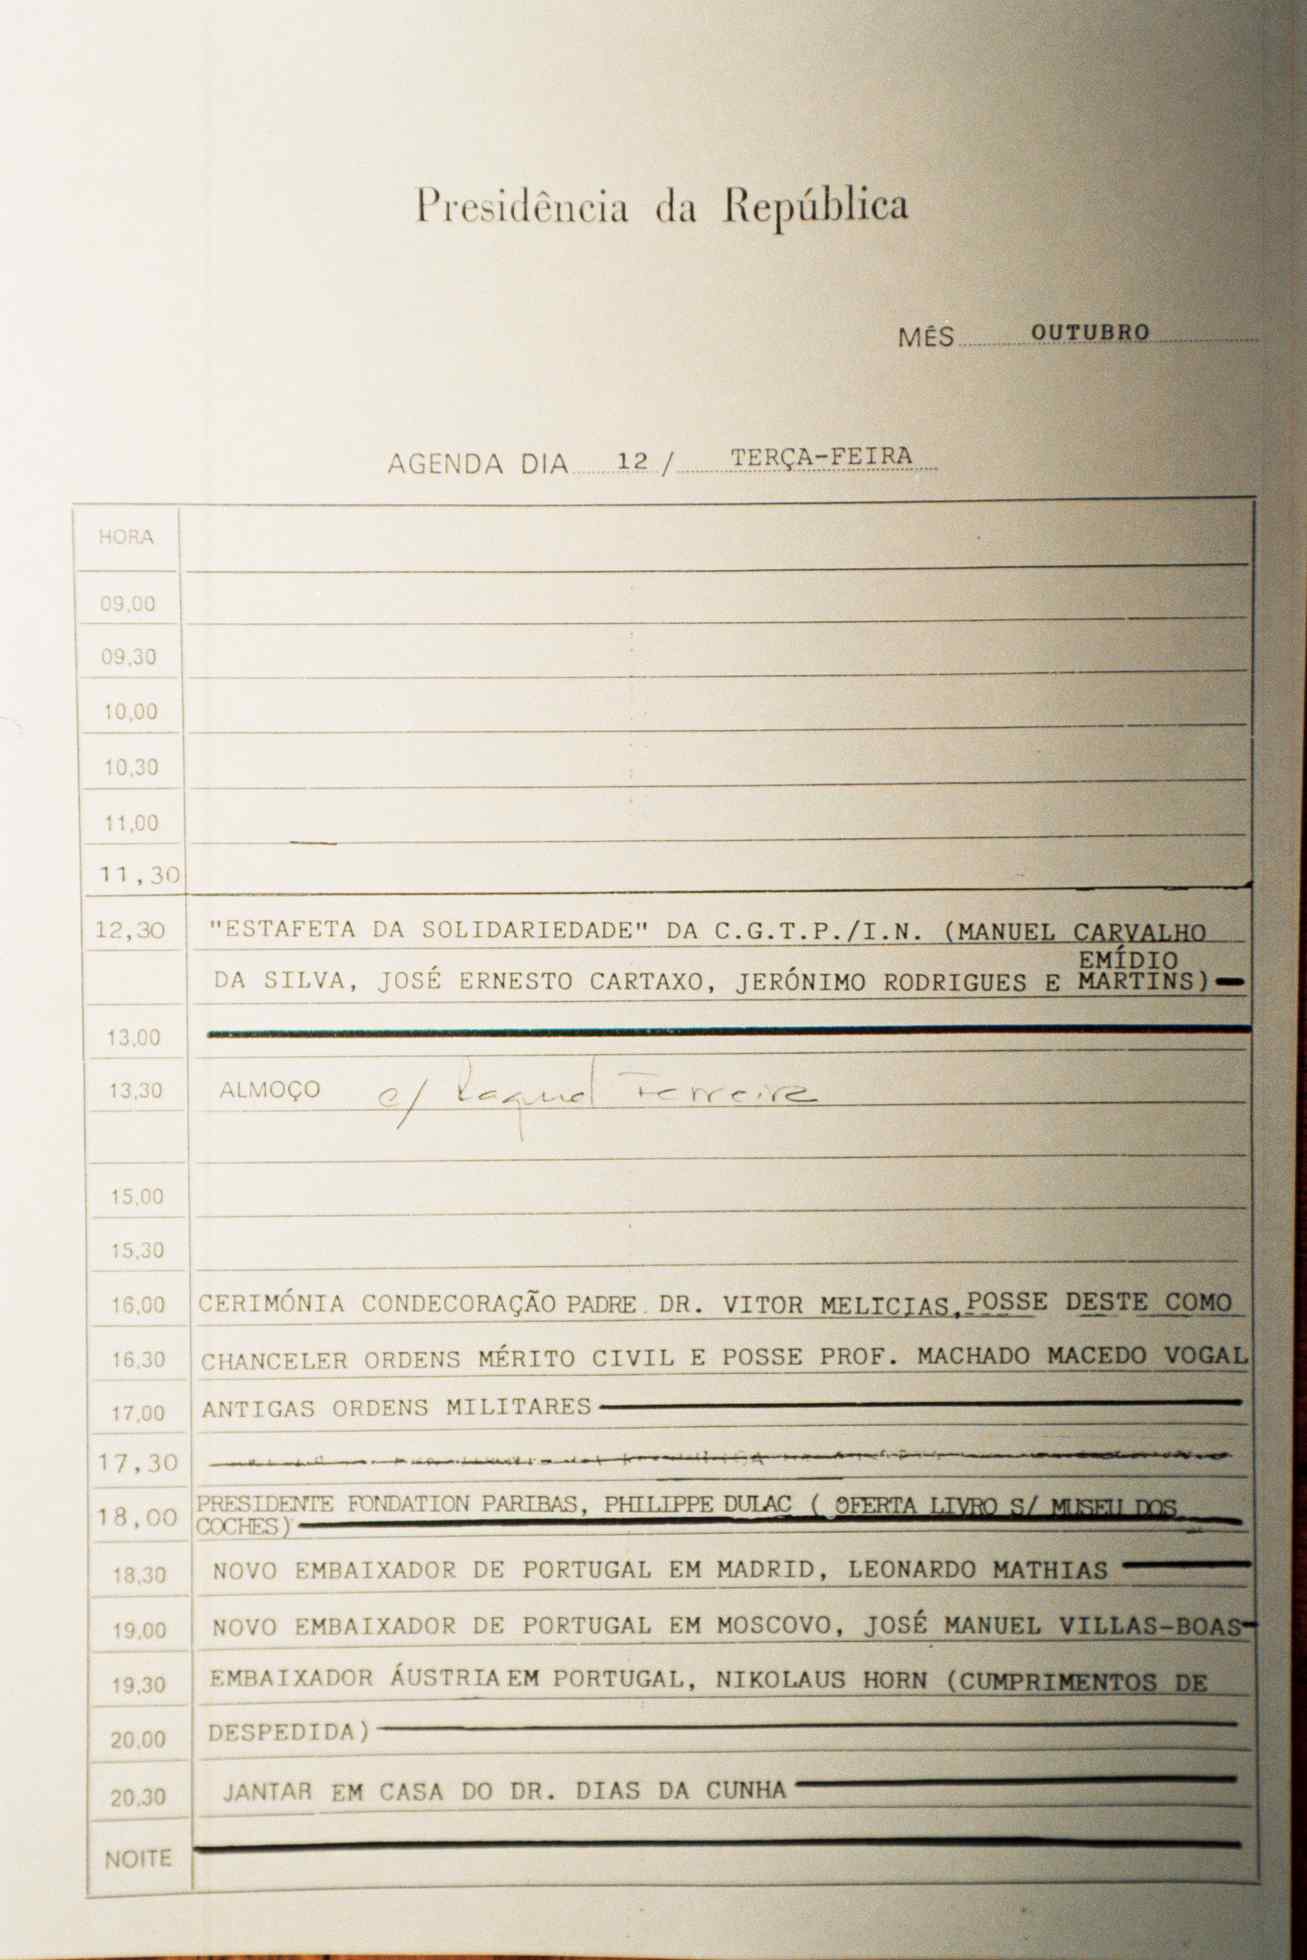 Presidência da República
MÊS OUTUBRO
AGENDA DIA 12 / TERÇA-FEIRA
HORA
09,00
09,30
10,00
10,30
11,00
11,30
12,30 "ESTAFETA DA SOLIDARIEDADE" DA C.G.T.P./I.N. (MANUEL CARVALHO
EMÍDIO
DA SILVA, JOSÉ ERNESTO CARTAXO, JERÓNIMO RODRIGUES E MARTINS)
13,00
13,30 ALMOÇO c/ Raquel Ferreira
15,00
15,30
16,00 CERIMÓNIA CONDECORAÇÃO PADRE DR. VITOR MELICIAS, POSSE DESTE COMO
16,30 CHANCELER ORDENS MÉRITO CIVIL E POSSE PROF. MACHADO MACEDO VOGAL
17,00 ANTIGAS ORDENS MILITARES
17,30
18,00 PRESIDENTE FONDATION PARIBAS, PHILIPPE DULAC ( OFERTA LIVRO S/ MUSEU DOS
COCHES)
18,30 NOVO EMBAIXADOR DE PORTUGAL EM MADRID, LEONARDO MATHIAS
19,00 NOVO EMBAIXADOR DE PORTUGAL EM MOSCOVO, JOSÉ MANUEL VILLAS-BOAS
19,30 EMBAIXADOR ÁUSTRIA EM PORTUGAL, NIKOLAUS HORN (CUMPRIMENTOS DE
20,00 DESPEDIDA)
20,30 JANTAR EM CASA DO DR. DIAS DA CUNHA
NOITE